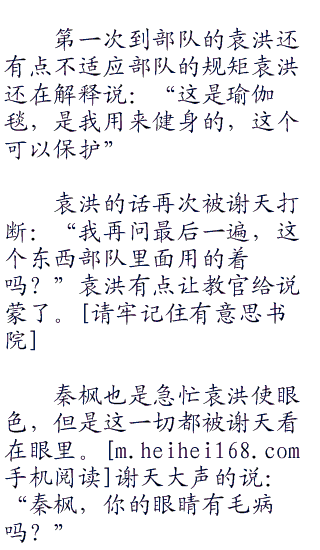 第一次到部队的袁洪还
有点不适应部队的规矩袁洪
还在解释说：“这是瑜伽
毯，是我用来健身的，这个
可以保护”
袁洪的话再次被谢天打
断：“我再问最后一遍，这
个东西部队里面用的着
吗？”袁洪有点让教官给说
蒙了。[请牢记住有意思书
院]
秦枫也是急忙袁洪使眼
色，但是这一切都被谢天看
在眼里。[m.heihei168.com
手机阅读]谢天大声的说：
“秦枫，你的眼睛有毛病
吗？”